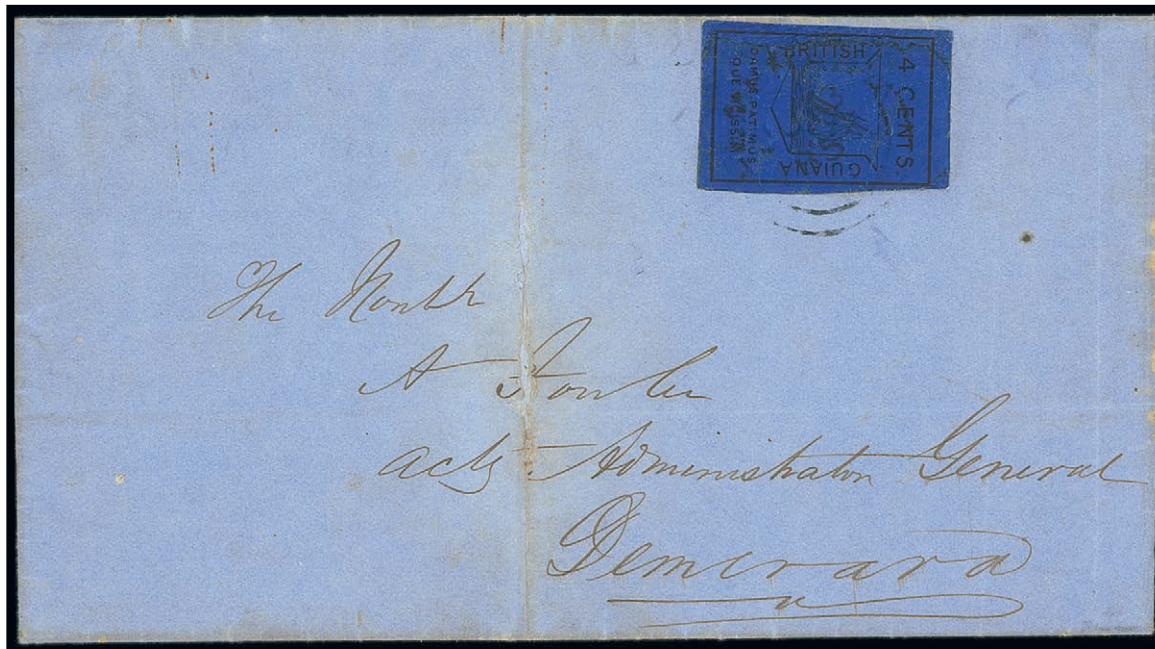 BRITISH
GUIANA
4 CENTS
DAMUS PATIMUS
QUE VICISSIM
The Honble
A Fowler
actg Administrator General
Demerara